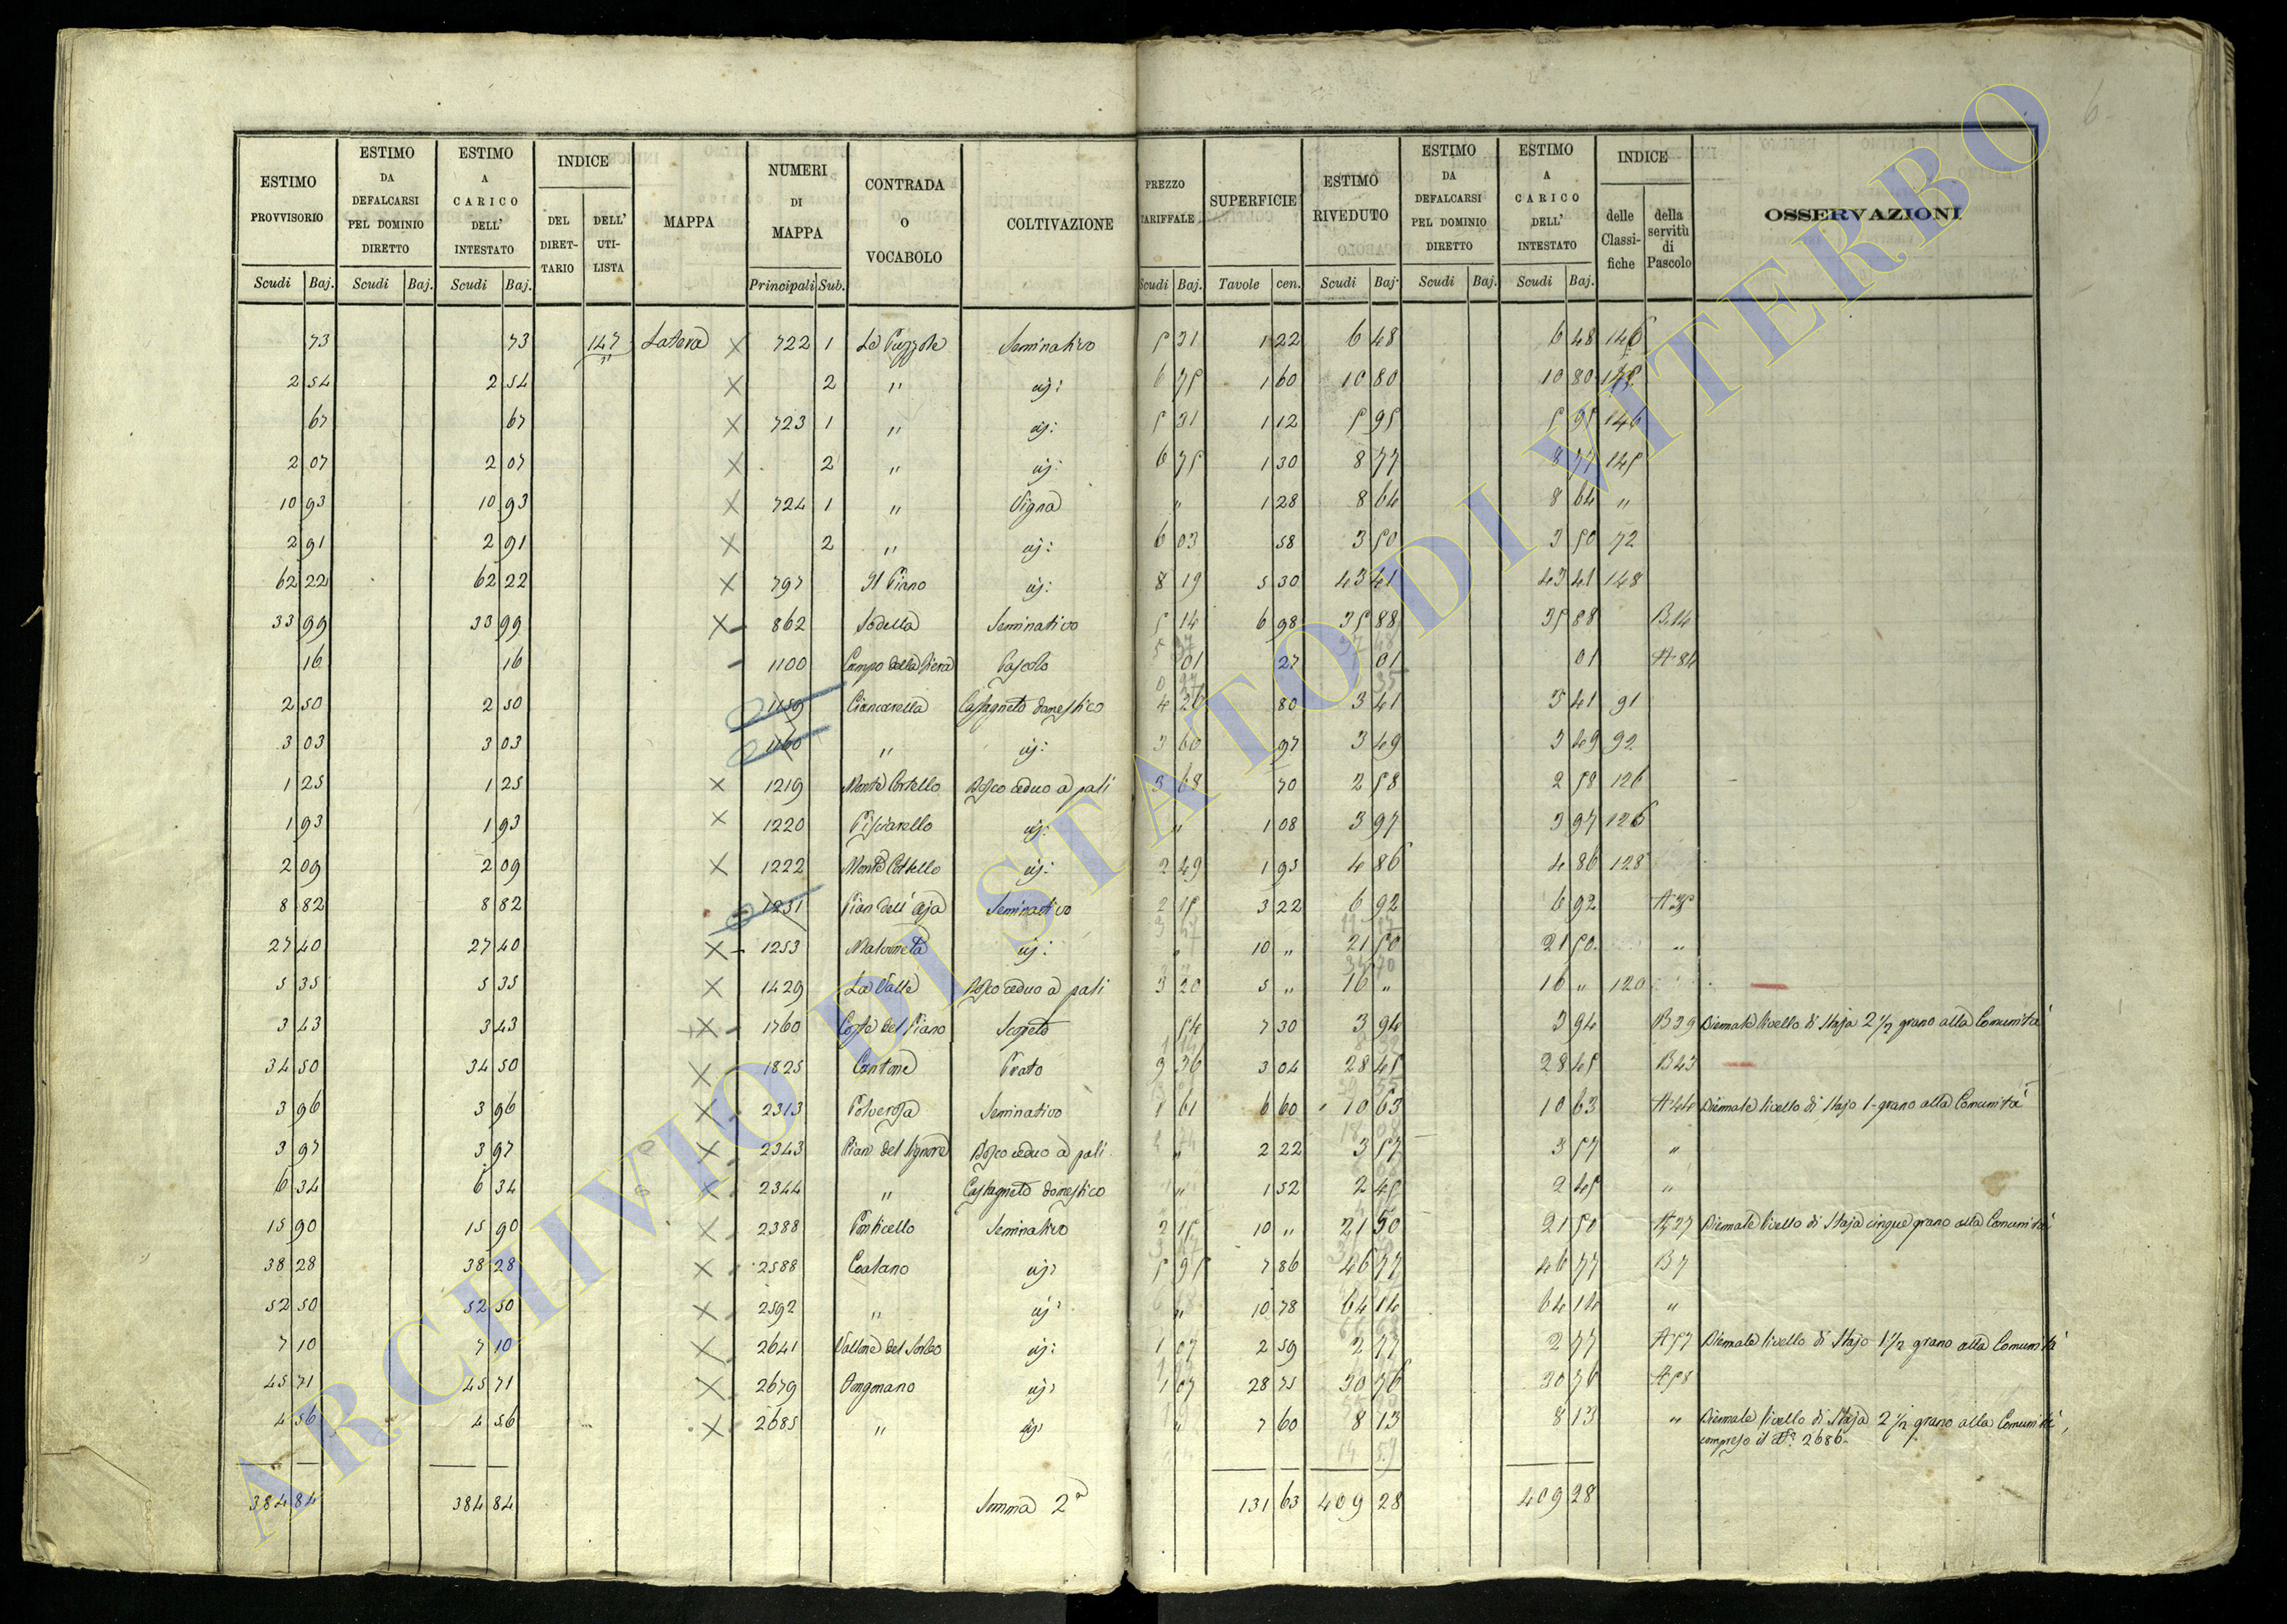 6
ESTIMO PROVVISORIO | ESTIMO DA DEFALCARSI PEL DOMINIO DIRETTO | ESTIMO A CARICO DELL' INTESTATO | INDICE | MAPPA | NUMERI DI MAPPA | CONTRADA O VOCABOLO | COLTIVAZIONE | PREZZO TARIFFALE | SUPERFICIE | ESTIMO RIVEDUTO | ESTIMO DA DEFALCARSI PEL DOMINIO DIRETTO | ESTIMO A CARICO DELL' INTESTATO | INDICE | OSSERVAZIONI
DEL DIRETTARIO | DELL' UTILISTA | delle Classifiche | della servitù di Pascolo
Scudi | Baj. | Scudi | Baj. | Scudi | Baj. | Principali | Sub. | Scudi | Baj. | Tavole | cen. | Scudi | Baj | Scudi | Baj. | Scudi | Baj.
73 | 73 | 147 | Latera | X | 722 | 1 | Le Puzzole | Seminativo | 5 31 | 1 22 | 6 48 | 6 48 | 146
2 54 | 2 54 | X | 2 | " | id: | 6 75 | 1 60 | 10 80 | 10 80 | 145
67 | 67 | X | 723 | 1 | " | id: | 5 31 | 1 12 | 5 95 | 5 95 | 146
2 07 | 2 07 | X | 2 | " | id: | 6 75 | 1 30 | 8 77 | 8 77 | 145
10 93 | 10 93 | X | 724 | 1 | " | Vigna | " | 1 28 | 8 64 | 8 64 | "
2 91 | 2 91 | X | 2 | " | id: | 6 03 | 58 | 3 50 | 3 50 | 72
62 22 | 62 22 | X | 797 | Il Piano | id: | 8 19 | 5 30 | 43 41 | 43 41 | 148
33 99 | 33 99 | X | 862 | Sodella | Seminativo | 5 14 | 6 98 | 35 88 | 35 88 | B.14
16 | 16 | 1100 | Campo della Fiera | Pascolo | 01 | 27 | 01 | 01 | A 84
2 50 | 2 50 | 1159 | Ciancarella | Castagneto domestico | 4 26 | 80 | 3 41 | 3 41 | 91
3 03 | 3 03 | 1160 | " | id: | 3 60 | 97 | 3 49 | 3 49 | 92
1 25 | 1 25 | X | 1219 | Monte Cortello | Bosco ceduo a pali | 3 68 | 70 | 2 58 | 2 58 | 126
1 93 | 1 93 | X | 1220 | Pisciarello | id: | " | 1 08 | 3 97 | 3 97 | 126
2 09 | 2 09 | X | 1222 | Monte Cortello | id: | 2 49 | 1 95 | 4 86 | 4 86 | 128
8 82 | 8 82 | 1231 | Pian dell'Aja | Seminativo | 2 15 | 3 22 | 6 92 | 6 92
27 40 | 27 40 | X | 1253 | id: | " | 10 " | 21 50 | 21 50 | "
5 35 | 5 35 | X | 1429 | La Valle | Bosco ceduo a pali | 3 20 | 5 " | 16 " | 16 " | 120
3 43 | 3 43 | X | 1760 | Coste del Piano | Sodeto | 54 | 7 30 | 3 94 | 3 94 | B 39 | Biennale livello di Staja 2 1/2 grano alla Comunità
34 50 | 34 50 | X | 1825 | Cantone | Prato | 9 36 | 3 04 | 28 45 | 28 45 | B 43
3 96 | 3 96 | X | 2313 | Polverosa | Seminativo | 1 61 | 6 60 | 10 63 | 10 63 | A 44 | Biennale livello di Stajo 1 grano alla Comunità
3 97 | 3 97 | X | 2343 | Pian del Signore | Bosco ceduo a pali | " | 2 22 | 3 57 | 3 57 | "
6 34 | 6 34 | X | 2344 | " | Castagneto domestico | " | 1 52 | 2 45 | 2 45 | "
15 90 | 15 90 | X | 2388 | Ponticello | Seminativo | 2 15 | 10 " | 21 50 | 21 50 | A 27 | Biennale livello di Staja cinque grano alla Comunità
38 28 | 38 28 | X | 2588 | Caatano | id: | 5 95 | 7 86 | 46 77 | 46 77 | B 7
52 50 | 52 50 | X | 2592 | " | id: | " | 10 78 | 64 14 | 64 14 | "
7 10 | 7 10 | X | 2641 | Vallone del Sorbo | id: | 1 07 | 2 59 | 2 77 | 2 77 | A 57 | Biennale livello di Stajo 1 1/2 grano alla Comunità
45 71 | 45 71 | X | 2679 | id: | 1 07 | 28 75 | 30 76 | 30 76 | A 58
4 56 | 4 56 | X | 2685 | " | id: | " | 7 60 | 8 13 | 8 13 | " | Biennale livello di Staja 2 1/2 grano alla Comunità,
compreso il N.º 2686
384 84 | 384 84 | Somma 2a | 131 63 | 409 28 | 409 28
ARCHIVIO DI STATO DI VITERBO